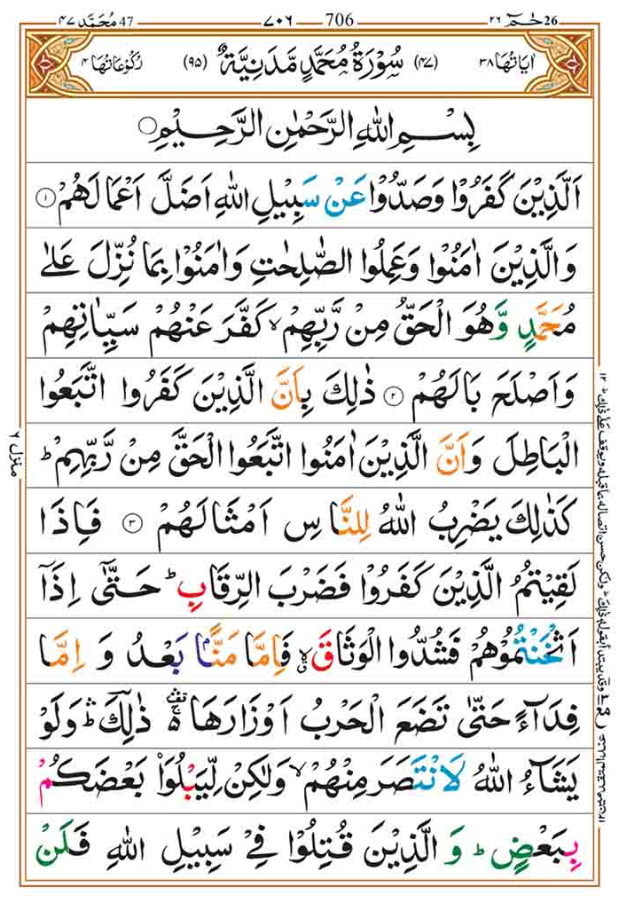 47 مُحَمَّد ۴۷ ۷۰۶ 706 ۲۶ حٰمٓ 26
اٰیَاتُهَا ۳۸ (۴۷) سُوْرَةُ مُحَمَّدٍ مَّدَنِيَّةٌ (۹۵) رُكُوْعَاتُهَا ۴
بِسْمِ اللّٰهِ الرَّحْمٰنِ الرَّحِيْمِ○
اَلَّذِيْنَ كَفَرُوْا وَصَدُّوْا عَنْ سَبِيْلِ اللّٰهِ اَضَلَّ اَعْمَالَهُمْ ۝۱
وَالَّذِيْنَ اٰمَنُوْا وَعَمِلُوا الصّٰلِحٰتِ وَاٰمَنُوْا بِمَا نُزِّلَ عَلٰى
مُحَمَّدٍ وَّهُوَ الْحَقُّ مِنْ رَّبِّهِمْ ۙ كَفَّرَ عَنْهُمْ سَيِّاٰتِهِمْ
وَاَصْلَحَ بَالَهُمْ ۝۲ ذٰلِكَ بِاَنَّ الَّذِيْنَ كَفَرُوا اتَّبَعُوا
الْبَاطِلَ وَاَنَّ الَّذِيْنَ اٰمَنُوا اتَّبَعُوا الْحَقَّ مِنْ رَّبِّهِمْ ؕ
كَذٰلِكَ يَضْرِبُ اللّٰهُ لِلنَّاسِ اَمْثَالَهُمْ ۝۳ فَاِذَا
لَقِيْتُمُ الَّذِيْنَ كَفَرُوْا فَضَرْبَ الرِّقَابِ ؕ حَتّٰۤى اِذَاۤ
اَثْخَنْتُمُوْهُمْ فَشُدُّوا الْوَثَاقَ ۙ فَاِمَّا مَنًّۢا بَعْدُ وَ اِمَّا
فِدَآءً حَتّٰى تَضَعَ الْحَرْبُ اَوْزَارَهَا ۛ۫ ذٰلِكَ ؕۛ وَلَوْ
يَشَآءُ اللّٰهُ لَانْتَصَرَ مِنْهُمْ ۙ وَلٰكِنْ لِّيَبْلُوَا۠ بَعْضَكُمْ
بِبَعْضٍ ؕ وَ الَّذِيْنَ قُتِلُوْا فِيْ سَبِيْلِ اللّٰهِ فَلَنْ
منزل ۶